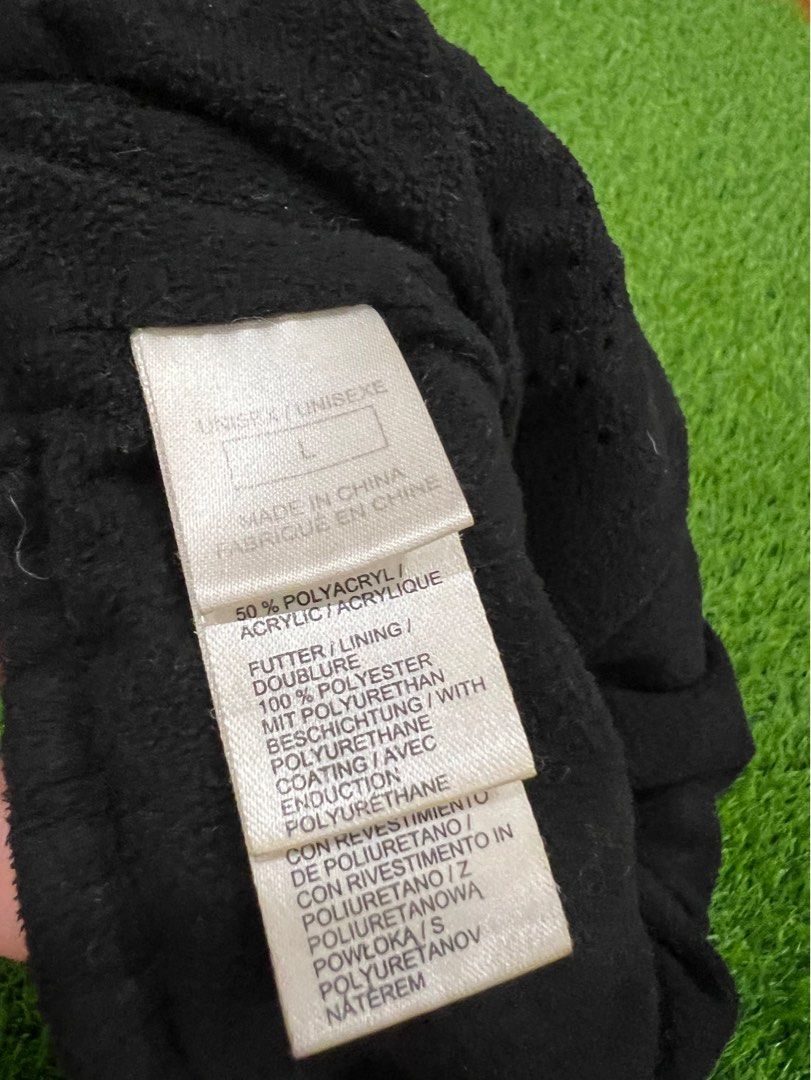 UNISEX / UNISEXE
L
MADE IN CHINA
FABRIQUÉ EN CHINE
50 % POLYACRYL /
ACRYLIC / ACRYLIQUE
FUTTER / LINING /
DOUBLURE
100 % POLYESTER
MIT POLYURETHAN
BESCHICHTUNG / WITH
POLYURETHANE
COATING / AVEC
ENDUCTION
POLYURETHANE
CON REVESTIMIENTO
DE POLIURETANO /
CON RIVESTIMENTO IN
POLIURETANO / Z
POLIURETANOWĄ
POWŁOKĄ / S
POLYURETANOV
NÁTEREM